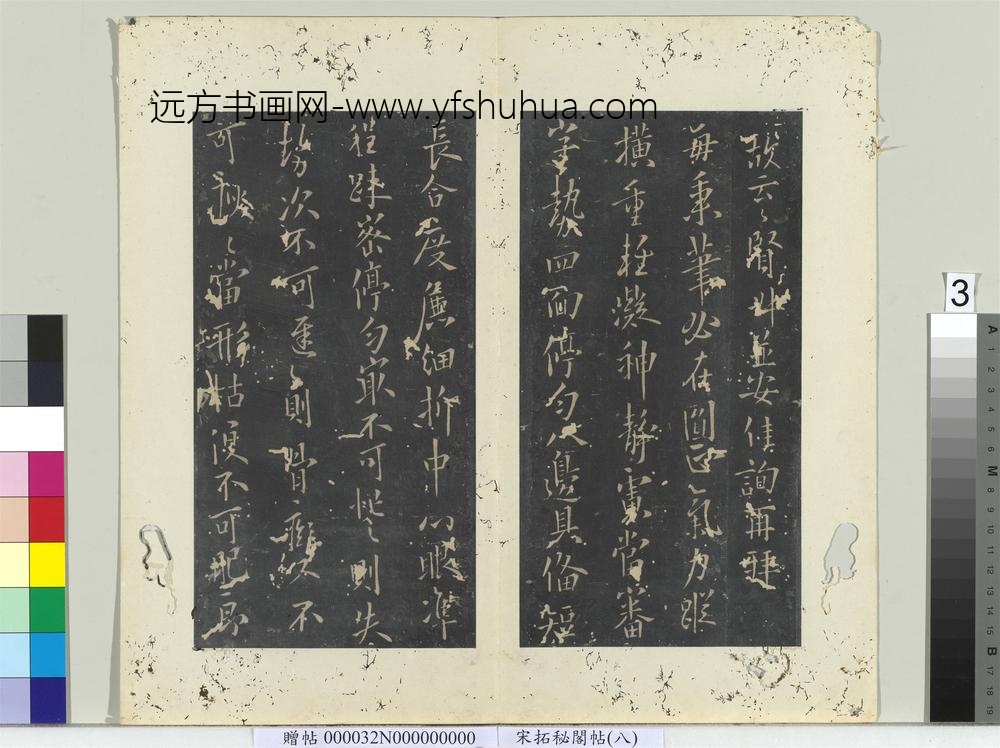 远方书画网-www.yfshuhua.com
故云々賢卅並安佳詢再拜
每秉筆必在圓正氣力縱
橫重輕凝神靜慮當審
字勢四面停勻八邊具備短
長合度麁細折中心眼準
程踈密停勻㝡不可忙々則失
勢次不可遲々則骨癡又不
可瘦々當形枯復不可肥々即
3
A
1
2
3
4
5
6
M
8
9
10
11
12
13
14
15
B
17
18
19
贈帖 000032N000000000 宋拓秘閣帖(八)